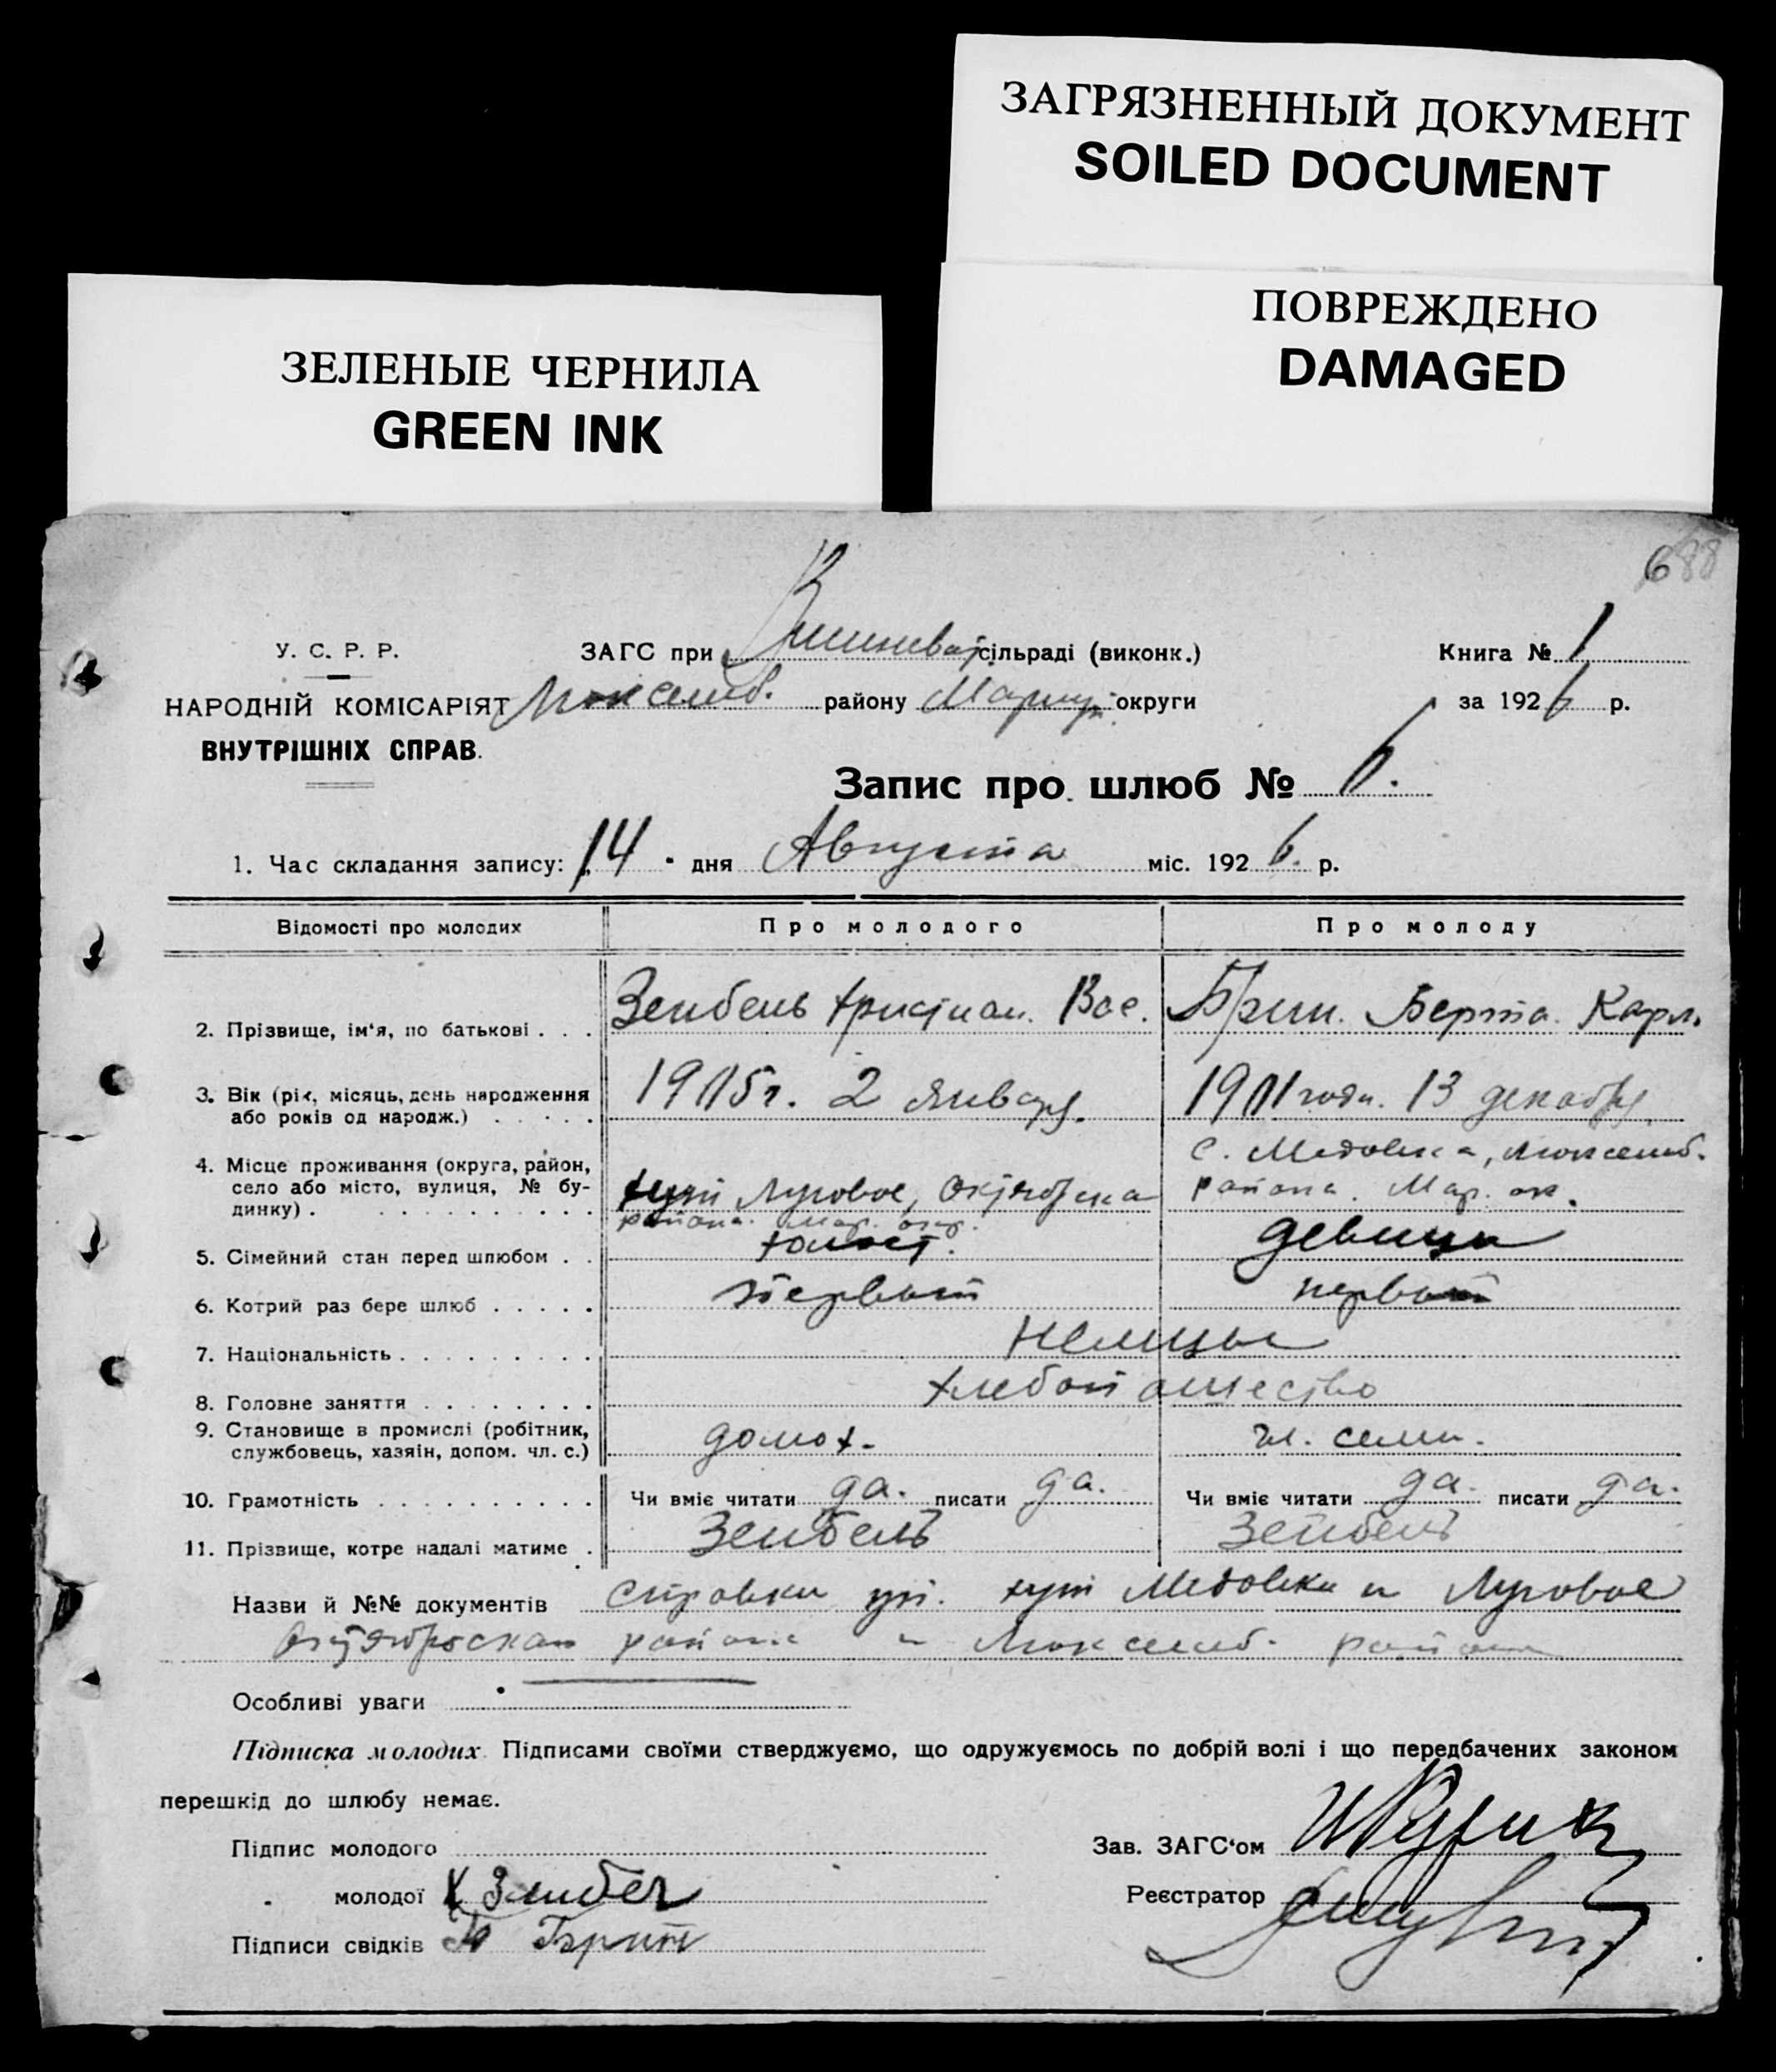 ЗАГРЯЗНЕННЫЙ ДОКУМЕНТ
SOILED DOCUMENT
ПОВРЕЖДЕНО
DAMAGED
ЗЕЛЕНЫЕ ЧЕРНИЛА
GREEN INK
688
У. С. Р. Р. ЗАГС при сільраді (виконк.) Книга № 1
НАРОДНІЙ КОМІСАРІЯТ Люксемб. району Мариуп. округи за 1926 р.
ВНУТРІШНІХ СПРАВ.
Запис про шлюб № 6.
1. Час складання запису: 14 дня Августа міс. 1926. р.
Відомості про молодих Про молодого Про молоду
2. Прізвище, ім'я, по батькові . . . Зейбель Христиан. Вас. Берта. Карл.
3. Вік (рік, місяць, день народження
або років од народж.) . . . . . 1905 г. 2 января. 1901 года. 13 декабря
4. Місце проживання (округа, район,
село або місто, вулиця, № бу-
динку) . . . . . . . . . . . хут Луговое, Октябрска
района. Мар. окр.
с. Медовка, Люксемб.
района. Мар. ок.
5. Сімейний стан перед шлюбом . . холост. девица
6. Котрий раз бере шлюб . . . . . первый первый
7. Національність . . . . . . . . . немцы
8. Головне заняття . . . . . . . . хлебопашество
9. Становище в промислі (робітник,
службовець, хазяін, допом. чл. с.) домох. чл. семи.
10. Грамотність . . . . . . . . . . Чи вміє читати да. писати да. Чи вміє читати да. писати да.
11. Прізвище, котре надалі матиме . Зейбель Зейбель
Назви й №№ документів справки уп. хут Медовки и Луговое
Октябрьскаго района и Люксемб. района
Особливі уваги
Підписка молодих. Підписами своїми стверджуємо, що одружуємось по добрій волі і що передбачених законом
перешкід до шлюбу немає.
Підпис молодого Зав. ЗАГС'ом
„ молодої Х Зейбел Реєстратор
Підписи свідків